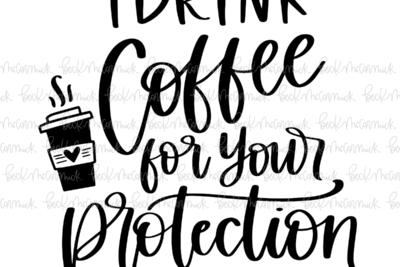 I DRINK
Coffee
for your
protection